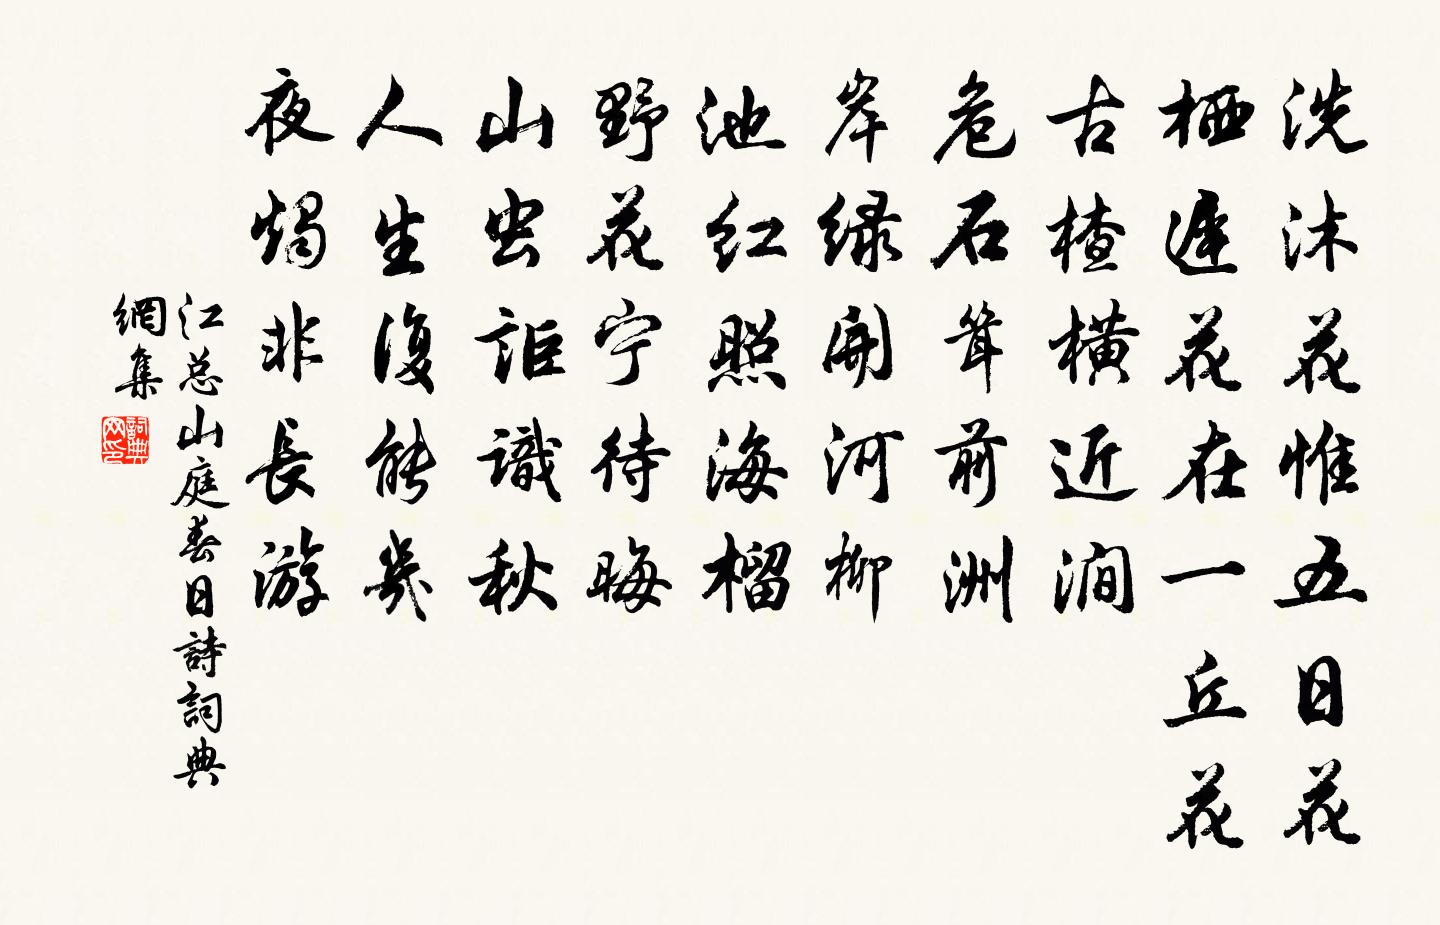 洗沐花惟五日花
栖遲花在一丘花
古楂橫近澗
危石聳前洲
岸緑開河柳
池紅照海榴
野花宁待晦
山虫詎識秋
人生復能幾
夜燭非長游
江总山庭春日詩詞典
網集
詞典
网印